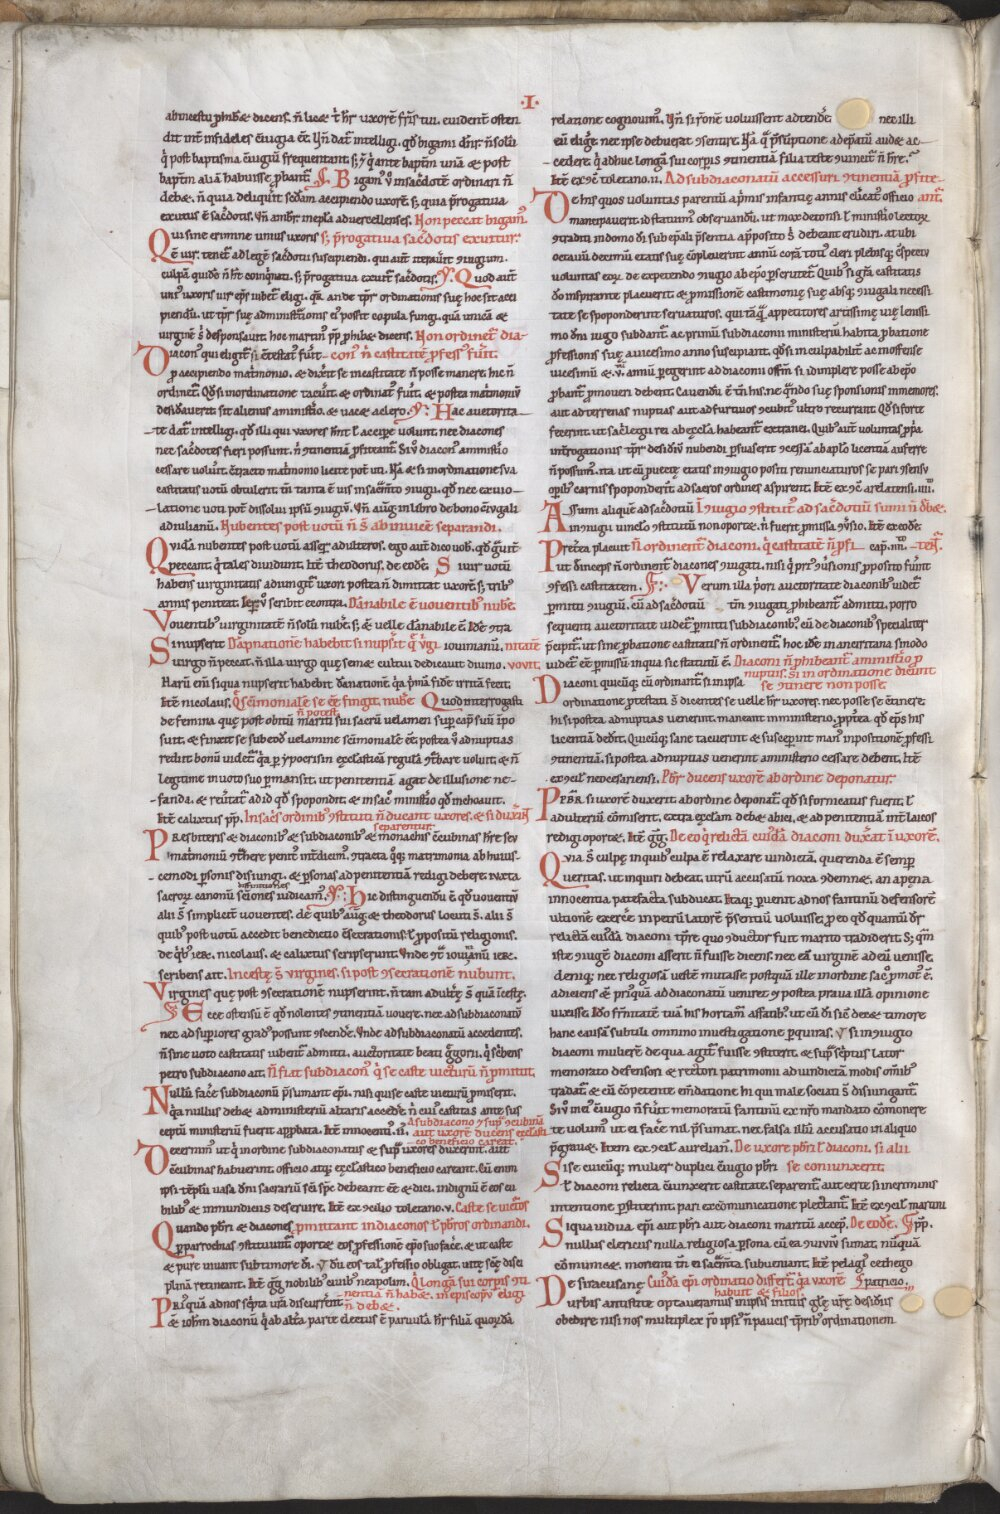 ·I·
ab incestu phibet dicens. ñ licet t' hr̄e uxorē frīs tui. evident' osten
dit int' infideles c̄iugia eē. Vñ dat' intelligi. qđ bigami dn̄r. ñ solū
q̇ post baptisma c̄iugiū frequentant. s; & q̇ ante baptm̄ unā & post
baptm̄ aliā habuisse pbant'. Bigam' ṽ in sacdote ordinari ñ
debet. ñ quia deliquit scđam accipiendo uxorē. s; quia p̄rogativa
exutus ē sacdotis. Vñ ambr̄. in epl'a ad vercellenses. Non peccat bigam'
Qui sine crimine unius uxoris s; p̄rogativa sacdotis exuitur.
ē vir. tenet' ad legē sacdotii suscipiendi. qui aut' iteraverit 9iugium.
culpā quidē ñ ht' coinq̇nati. s; p̄rogativa exuit' sacdotis. Quod aut'
uni' uxoris vir ep̄s iubet' eligi.
piendū. ut tp̄r suę administrationis ei' possit copula fungi. quā unicā &
virginē s' desponsavit. hoc martin' pp̄ phibet dicens. Non ordinet' dia
Diacon' qui eligit' si 9testat' fuerit con' ñ castitatē pfess' fuerit.
p accipiendo mat'monio. & dixerit se in castitate ñ posse manere. hic ñ
ordinet'. Qđ si in ordinatione tacuerit & ordinat' fuerit. & postea mat'moniū
desideraverit sit alienus a ministio. & vacet a clero. Hac auctorita
te dat' intelligi. qđ illi qui uxores hn̄t l' accipe volunt. nec diacones
nec sacdotes fieri possunt. ñ 9tinentiā pfiteant'. Si ṽ diacon' a ministio
cessare voluerit. 9tracto mat'monio licite pot' uti. Nā & si in ordinatione sua
castitatis votū obtulerit. tm̄ tanta ē vis in sacm̄to 9iugii. qđ nec ex vio
latione voti pot' dissolvi ipsū 9iugiū. Vñ aug' in libro de bono c̄iugali
ad iulianū. Nubentes post votū ñ s' ab invicē separandi.
Quidā nubentes post votū asser' adulteros. ego aut' dico vob'. qđ gravit'
peccant. q̇ tales dividunt. Itē theodorus. de eodē. Si vir votū
habens virginitatis adiungit' uxori postea ñ dimittat uxorē. s; trib'
annis peniteat. Iero' ṽ scribit econtra. Dānabile ē voventib' nubē.
Voventib' virginitatē ñ solū nubē. s; & velle dānabile ē. Idē 9tra
Si nupserit Dāpnationē habebit si nupserit q̇ v̇g' iovinianū. nitatē
virgo ñ peccat. ñ illa virgo quę semet cultui dedicavit divino. vovit.
Harū enī si qua nupserit habebit dānationē. q̇a p'mā fidē irritā fecit.
Itē nicolaus. Q̇ scīmonialē se eē fingit. nubē Quod interrogasti
ñ potest.
de femina quę post obitū mariti sui sacrū velamen sup cap' suū ipo
suit. & finxit se sub eodē velamine scīmonialē eē. postea ṽ ad nuptias
rediit bonū videt'. q̇a p ypocrisim ęcclesiasticā regulā 9turbare voluit. & ñ
legitime in voto suo pmansit. ut penitentiā agat de illusione ne
fanda. & revertat' ad id qđ spopondit. & in sac' ministio qđ inchoavit.
Itē calixtus pp̄. In sacis ordinib' 9stituti ñ ducant uxores. & si duxerint
separentur.
Presbiteris & diaconib' & subdiaconib' & monachis c̄cubinas hr̄e seu
mat'moniū 9t'here penit' int'dicim'. 9tracta q̇q; matrimonia ab huius
cemodi psonis disiungi. & psonas ad penitentiā redigi debere. iuxta
diffinitiones
sacrorū canonū scīones iudicam'. Hic distinguendū ē qđ voventiū
alii s' simplicit' voventes. de quib' aug' & theodorus locuti s'. alii s'
quib' post votū accedit benedictio 9secrationis. l' ppositū religionis.
de q̇b' iero. nicolaus. & calixtus scripserunt. Vnde 9t' iovinianū iero.
scribens ait. Incestę s' virgines. si post 9secrationē nubunt.
Virgines quę post 9secrationē nupserint. ñ tam adulterę s' quā incestę.
Ecce ostensū ē qđ nolentes 9tinentiā vovere. nec ad subdiaconatū
nec ad superiores grad' possunt 9scendere. Vnde ad subdiaconatū accedentes.
ñ sine voto castitatis iubent' admitti. auctoritate beati g'gorii. q̇ scribens
petro subdiacono ait. Ñ fiat subdiacon' q̇ se caste victurū ñ pmittit.
Nullū facere subdiaconū p̄sumant ep̄i. nisi qui se caste victurū pmiserit.
q̇a nullus debet ad ministeriū altaris accedere. ñ ei' castitas ante sus
ceptū ministeriū fuerit app̄bata. Itē innocenti'. ii. A subdiacono & sup' 9cubinā
aut uxorē ducens ęcclesiasti
co beneficio careat.
Decernim' ut q̇ in ordine subdiaconatus & sup' uxores duxerint. aut
c̄cubinas habuerint. officio atq; ęcclesiastico beneficio careant. Cū enim
ipsi templū vasa dn̄i sacrariū sc̄i spc̄ debeant eē & dici. indignū ē eos cu
bilib' & inmundiciis deservire. Itē ex 9cilio toletano. v. Caste se victuros
Quando pbr̄i & diacones pmittant in diaconos l' pbr̄os ordinandi.
p parrochias 9stituunt'. oportet eos pfessionē ep̄o suo facere. & ut caste
& pure vivant sub timore di'. Vt dū eos tal' pfessio obligat. vitę scę disci
plinā retineant. Itē g'g nobilib' civib' neapolim. Q̇ longā sui corpis 9ti
nentiā ñ habet. in episcopū eligi
ñ debet.
Priq̇uā ad nos scripta vr̄a discurrerent
& ioh'm diaconū q̇ ab altera parte electus ē parvulā hr̄e filiā quorūdā
relatione cognovim'. Vñ si rōnē voluissent adtendere. nec illi
eū eligere. nec ipse debuerat 9sentire. Nā q̇ p̄sumptione ad ep̄atū audet ac
cedere. q̇ adhuc longā sui corpis 9tinentiā filia teste 9vincit' ñ hr̄e.
Itē ex 9c' toletano. ii. Ad subdiaconatū accessuri 9tinentiā pfite
De his quos voluntas parentū a p'mis infantię annis cl'icat' officio ant'.
manciparit. id statuim' observandū. ut mox detonsi. l' ministio lector'
9traditi. in domo di' sub ep̄ali p̄sentia a pposito s' debeant erudiri. at ubi
octavū decimū etatis suę 9pleverint annū. corā toti' cleri plebisq; 9spectu
voluntas eor' de expetendo 9iugio ab ep̄o pscrutet'. Quib' si gr̄a castitatis
do inspirante placuerit. & pmissionē castimonię suę absq; 9iugali necessi
tate se spoponderint servaturos. qui tāq̇ appetitores artissimę vię lenissi
mo dn̄i iugo subdant'. ac primū subdiaconii ministeriū habita pbatione
pfessionis suę a vicesimo anno suscipiant. Qđ si inculpabilit' ac inoffense
vicesimū & .v. annū pegerint. ad diaconii officm̄ si idp̄lere posse ab ep̄o
pbant' pmoveri debent. Cavendū ē tm̄ his. ne q̇ndo suę sponsionis inmemores.
aut ad terrenas nuptias aut ad furtivos 9cubit' ultro recurrant. Qđ si forte
fecerint. ut sac'legii rei ab ęccl'a habeant' extranei. Quib' aut' voluntas pp'a
int'rogationis tp̄r desideriū nubendi psuaserit. 9cessā ab apl'o licentiā auferre
ñ possum'. ita. ut cū pvectę etatis in 9iugio positi renuntiaturos se pari 9sensu
opib' carnis spoponderint. ad sacros ordines aspirent. Itē ex 9c' arelatensi. iiii.
Assumi aliquē ad sacdotiū I 9iugio 9stitut' ad sacdotiū sumi ñ debet.
in 9iugii vinclo 9stitutū non oportet. ñ fuerit pmissa 9versio. Itē ex eodē.
Preterea placuit Ñ ordinent' diaconi. q̇ castitatē ñ pfi cap. iiii. tent'.
ut deinceps ñ ordinent' diacones 9iugati. nisi q̇ pri' 9versionis pposito fuerint
9fessi castitatem. Verum illa p'ori auctoritate diaconib' videt'
pmitti 9iugiū. cū ad sacdotiū tm̄ 9iugati phibeant' admitti. porro
sequenti auctoritate videt' pmitti subdiaconib'. cū de diaconib' specialiter
p̄cipit'. ut sine pbatione castitatis ñ ordinent'. hoc idē in ancyritana sinodo
videt' eē pmissū in qua sic statutū ē. Diaconi ñ phibeant' a ministio p
nuptiis. si in ordinatione dicunt
se 9tinere non posse.
Diaconi quicūq; cū ordinant' si in ipsa
ordinatione ptestati s' dicentes se velle hr̄e uxores. nec posse se 9tinere.
hi si postea ad nuptias venerint. maneant in ministerio. ppterea qđ ep̄s his
licentiā dederit. Quicūq; sane tacuerint & susceperint man' inpositionē pfessi
9tinentiā. si postea ad nuptias venerint a ministerio cessare debent. Itē
ex 9cil' neocesariensi. Pbr̄ ducens uxorē ab ordine deponatur.
Pbr̄ si uxorē duxerit ab ordine deponat'. Qđ si fornicatus fuerit. l'
adulteriū c̄miserit. extra ęccl'am debet abici. & ad penitentiā int' laicos
redigi oportet. Itē g'g. De eo q̇ relictā cuiđā diaconi duxerat I uxorē.
Quia s' culpę in quib' culpa ē relaxare vindictā. querenda ē semp
veritas. ut inquiri debeat. utrū accusatū noxa 9demnet. an apęta
innocentia. patefacta subducat. Itaq; pvenit ad nos fantinū defensorē
ultionē exercere in petrū latorē p̄sentiū voluisse. p eo qđ quandā dr̄
relictā cuiđā diaconi tp̄re quo 9ductor fuit marito tradiderit. S; q̄m
iste 9iugē diaconi asserit ñ fuisse dicens. nec eā virginē ad eū venisse.
deniq; nec religiosā vestē mutasse postquā ille in ordine sac' pmot' ē.
adiciens & priq̇uā ad diaconatū veniret & postea prava illā opinione
vixisse. Ido fr̄nitatē tuā his hortam' affatib'. ut cū di' sic' decet timore
hanc causā subtili omnino investigatione pquiras. Vt si in 9iugio
diaconi mulierē de qua agit' fuisse 9stiterit. & sup' sc̄ptus lator
memorato defensori & rectori patrimonii ad vindictā modis om̄ib'
tradat'. & cū 9petente em̄datione hi qui male sociati s' disiungant'.
Si ṽ mei' c̄iugio ñ fuerit memoratū fantinū ex nr̄o mandato c̄monere
te volum'. ut ei facere nil p̄sumat. nec falsa illū accusatio in aliquo
p̄gravet. Item ex 9cil' aurelian'. De uxore pbr̄i l' diaconi. si alii
Si se cuicūq; mulier duplici c̄iugio pbr̄i se coniunxerit.
l' diaconi relicta c̄iunxerit castitatē. separent'. aut certe si in criminis
intentione pstiterint. pari excōmunicatione plectant'. Itē ex 9cil' martini
Si qua vidua ep̄i aut pbr̄i aut diaconi maritū accep'. De eodē. pp̄.
nullus clericus nulla religiosa psona cū ea 9viviū sumat. nūquā
cōmunicet. morienti tm̄ ei sacm̄ta subveniant. Itē pelagi' cethego
De siracusanę Cuiđā ep̄i ordinatio differt'. q̇a uxorē patricio.
habuit & filios.
urbis antistite optaveramus in ipsis initiis glę vr̄ę desideriis
obedire nisi nos multiplex rō ipsi' ñ paucis tp̄rib' ordinationem